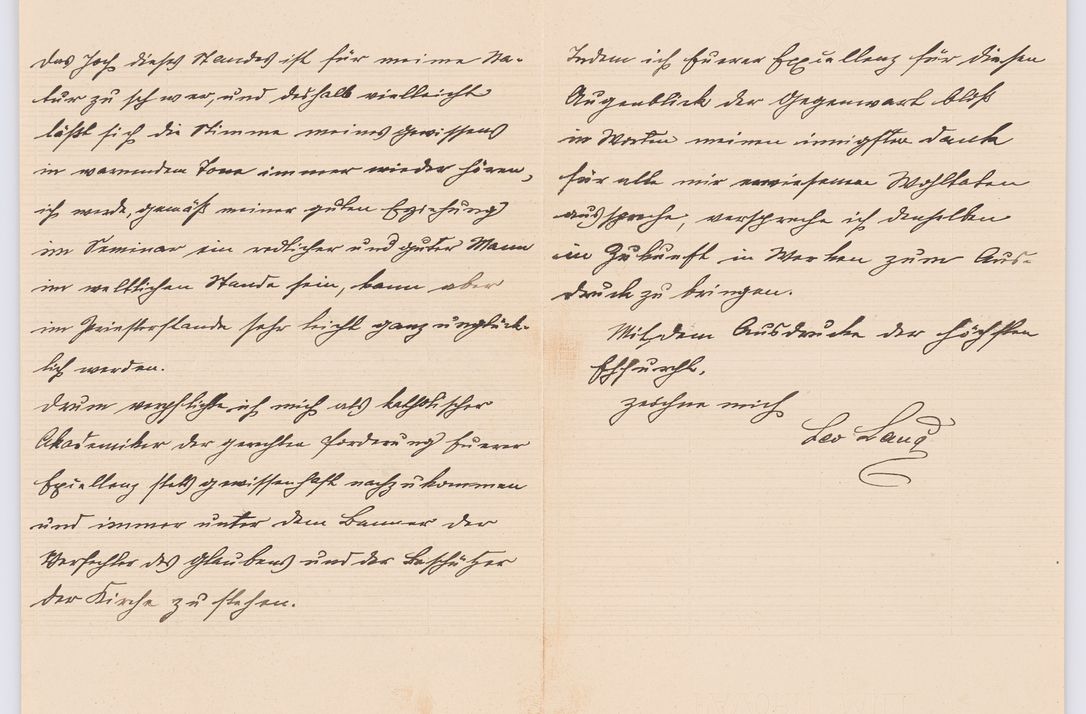 das Joch dieses Standes ist für meine Na-
tur zu schwer, und deshalb vielleicht
läßt sich die Stimme meines Gewissens
in warnendem Tone immer wieder hören,
ich werde, gemäß meiner guten Erziehung
im Seminar ein redlicher und guter Mann
im weltlichen Stande sein, kann aber
im Priesterstande sehr leicht ganz unglück-
lich werden.
Drum verpflichte ich mich als katholischer
Akademiker der gerechten Forderung Euerer
Exzellenz stets gewissenhaft nachzukommen
und immer unter dem Banner der
Verfechter des Glaubens und der Beschützer
der Kirche zu stehen.
Indem ich Euerer Exzellenz für diesen
Augenblick der Gegenwart bloß
in Worten meinen innigsten Dank
für alle mir erwiesenen Wohltaten
ausspreche, verspreche ich denselben
in Zukunft in Werken zum Aus-
druck zu bringen.
Mit dem Ausdrucke der höchsten
Ehrfurcht,
zeichne mich
Leo Lang